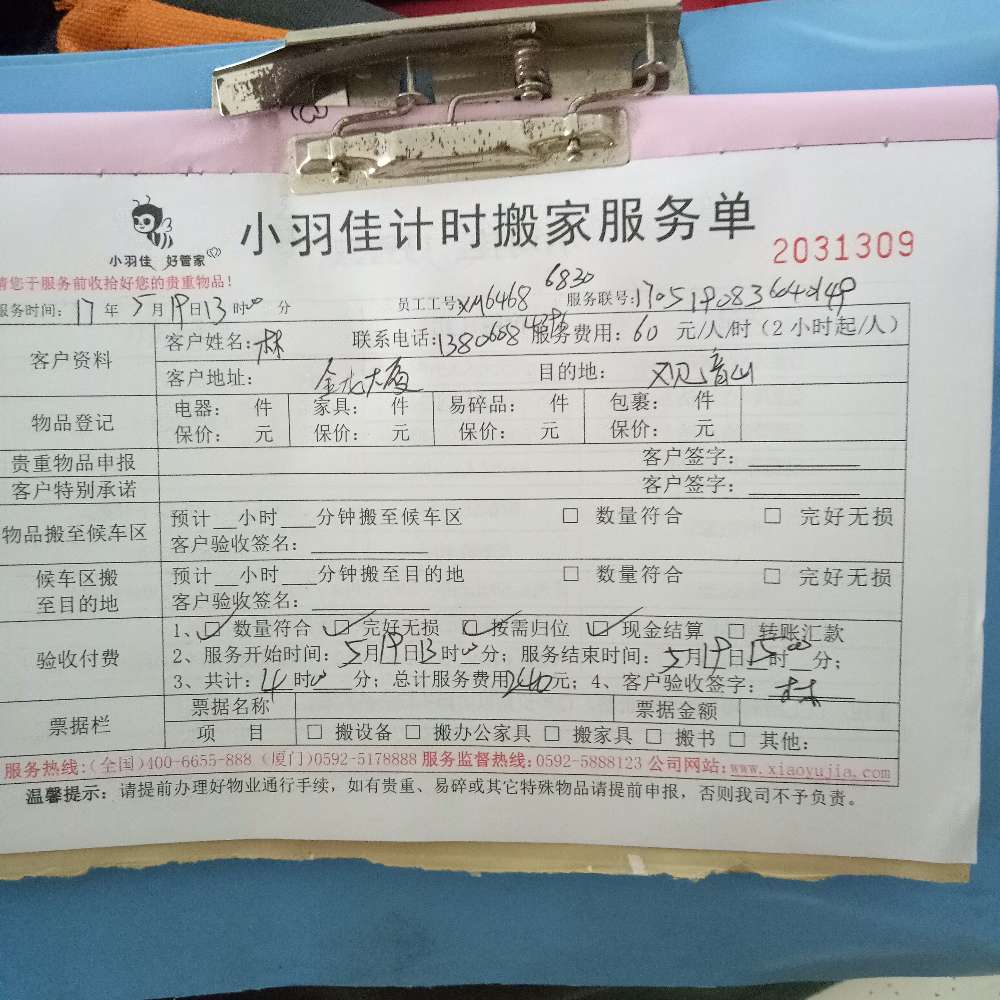 小羽佳 好管家
小羽佳计时搬家服务单
2031309
请您于服务前收拾好您的贵重物品!
服务时间: 17 年 5 月 19 日 13 时00 分 员工工号:XM6468 6830 服务联号:1705190836040149
客户资料
客户姓名:林 联系电话: 服务费用: 60 元/人/时(2小时起/人)
客户地址: 金龙大厦 目的地: 观音山
物品登记
电器: 件 家具: 件 易碎品: 件 包裹: 件
保价: 元 保价: 元 保价: 元 保价: 元
贵重物品申报 客户签字:
客户特别承诺 客户签字:
物品搬至候车区
预计__小时___分钟搬至候车区 □ 数量符合 □ 完好无损
客户验收签名:
候车区搬至目的地
预计__小时___分钟搬至目的地 □ 数量符合 □ 完好无损
客户验收签名:
验收付费
1、☑ 数量符合 ☑ 完好无损 ☑ 按需归位 ☑ 现金结算 □ 转账汇款
2、服务开始时间: 5月19日13时00分; 服务结束时间: 5月19日15时00分;
3、共计: 4时00分; 总计服务费用240元; 4、客户验收签字: 林
票据栏
票据名称 票据金额
项 目 □ 搬设备 □ 搬办公家具 □ 搬家具 □ 搬书 □ 其他:
服务热线:(全国)400-6655-888 (厦门)0592-5178888 服务监督热线:0592-5888123 公司网站:www.xiaoyujia.com
温馨提示: 请提前办理好物业通行手续, 如有贵重、易碎或其它特殊物品请提前申报, 否则我司不予负责。